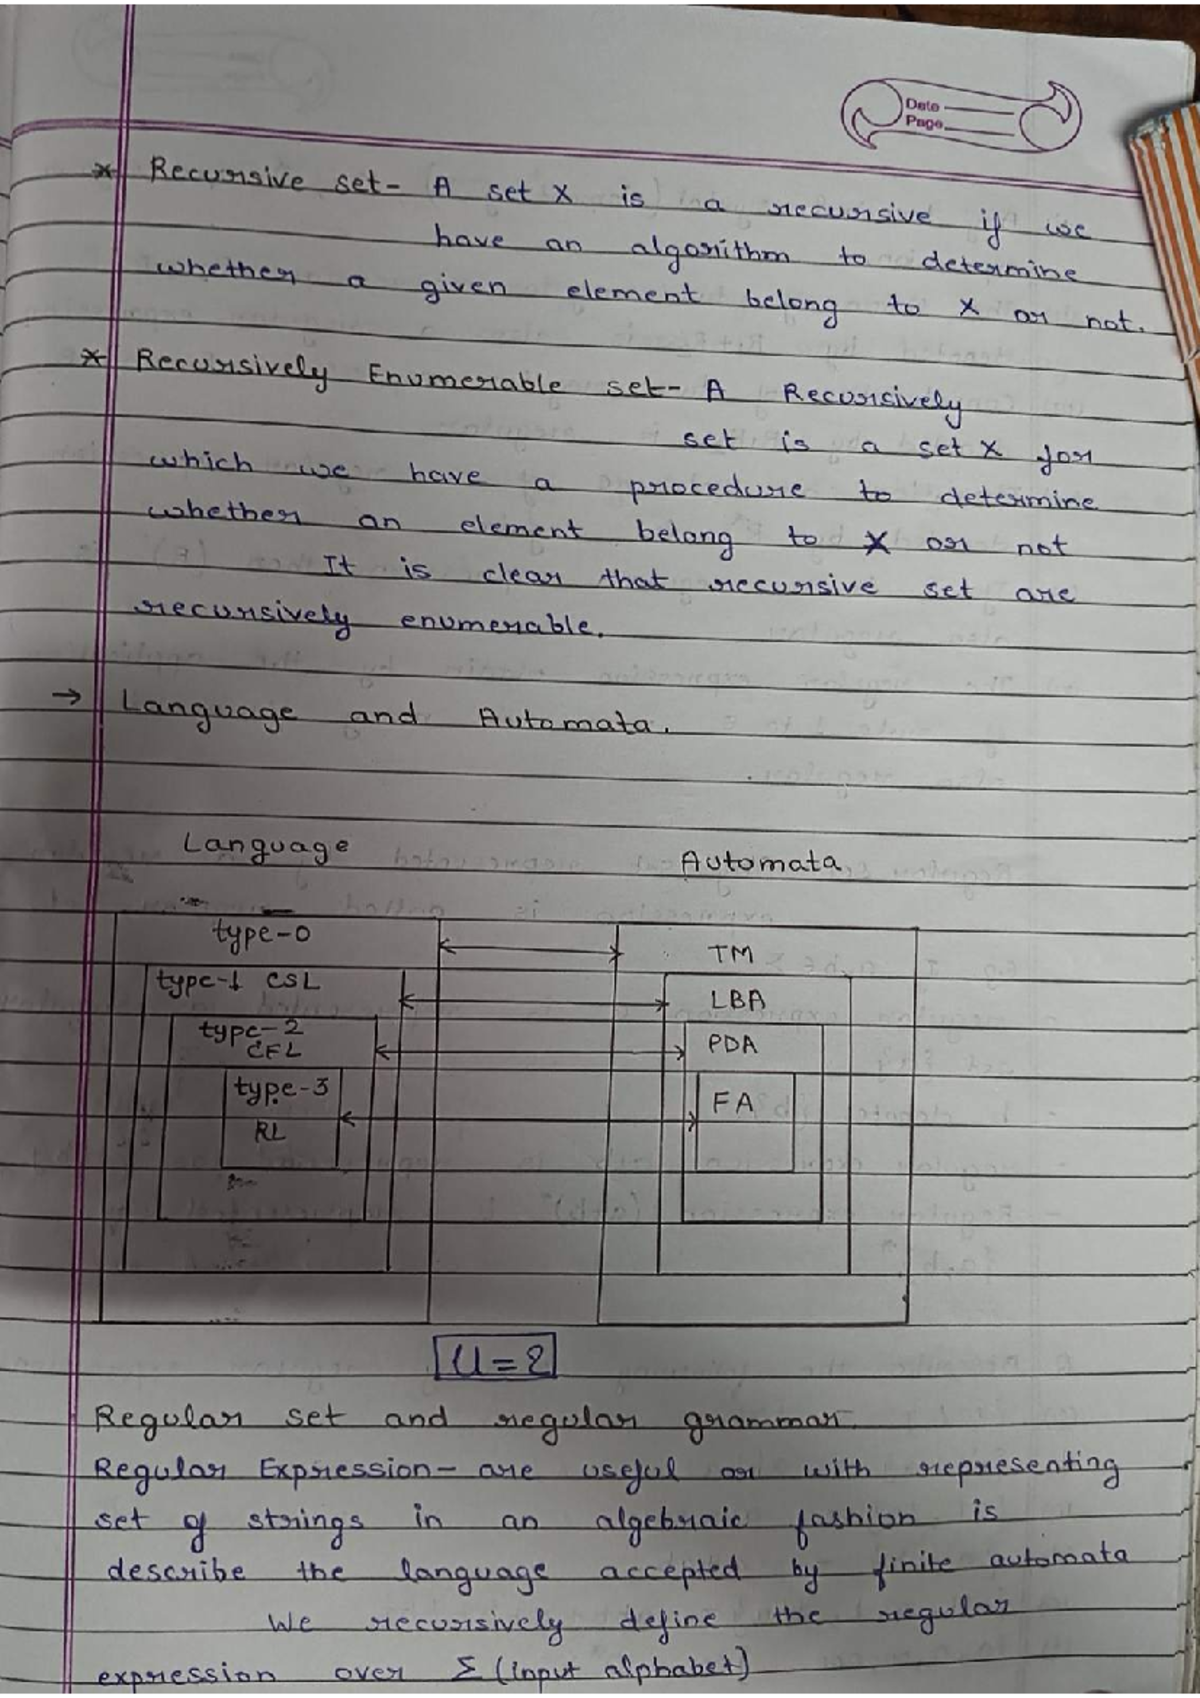 Date
Page
* Recursive set- A set X is a recursive if we
have an algorithm to determine
whether a given element belong to X or not.
* Recursively Enumerable set- A Recursively
set is a set X for
which we have a procedure to determine
whether an element belong to X or not
It is clear that recursive set are
recursively enumerable.
→ Language and Automata.
Language Automata
type-0 TM
type-1 CSL LBA
type-2 PDA
CFL
type-3 FA
RL
U=2
Regular set and regular grammar.
Regular Expression- are useful or with representing
set of strings in an algebraic fashion is
describe the language accepted by finite automata
We recursively define the regular
expression over Σ (input alphabet)